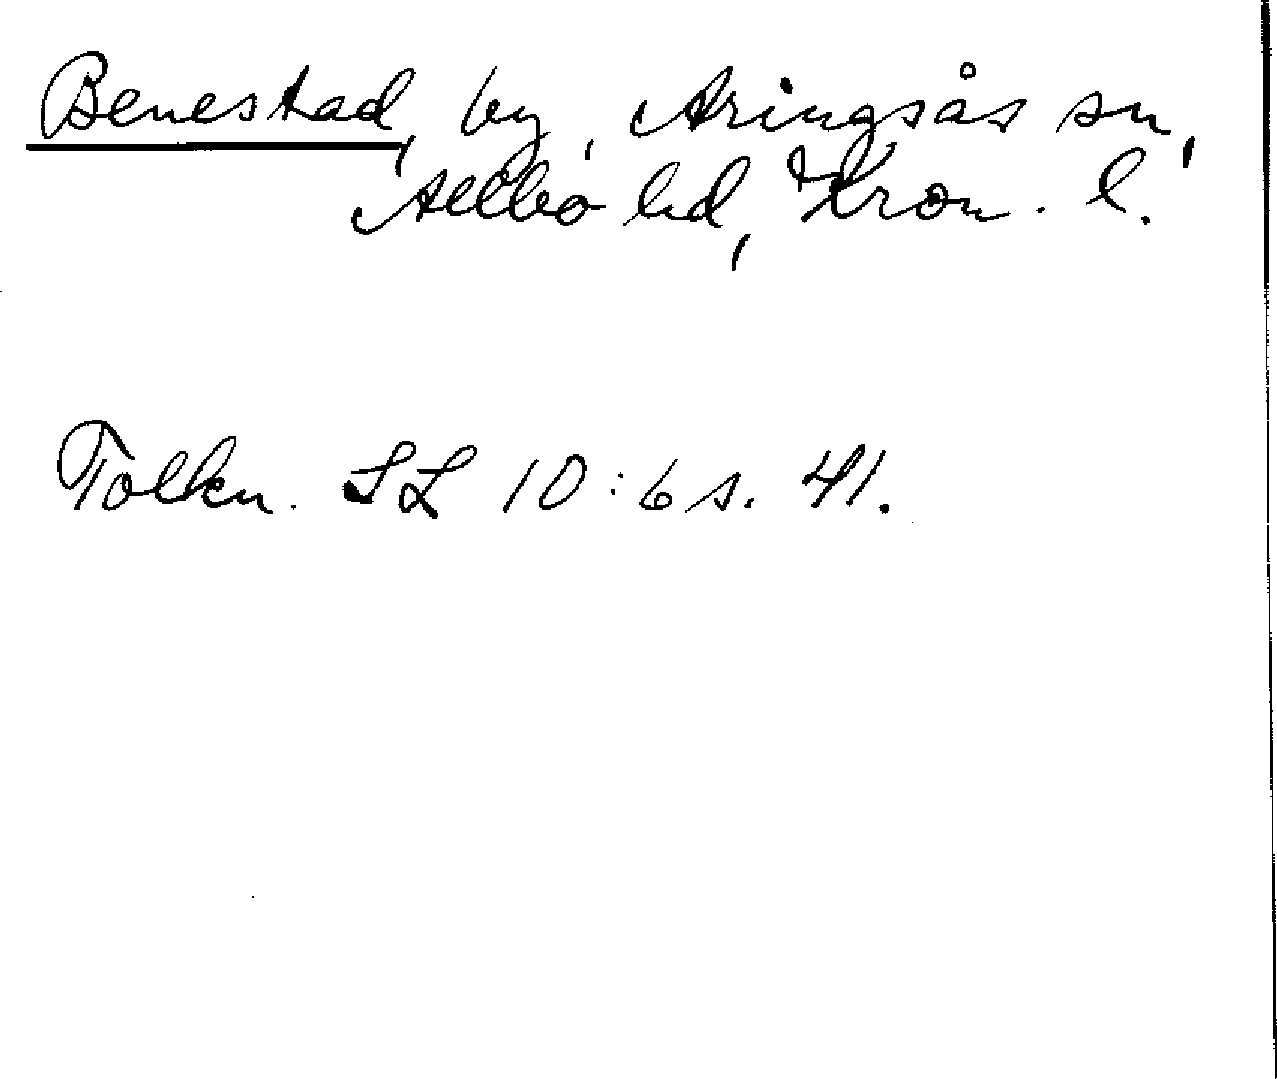 Benestad, by, Aringsås sn,
Allbo hd, Kron. l.
Tolkn. SL 10:6 s. 41.